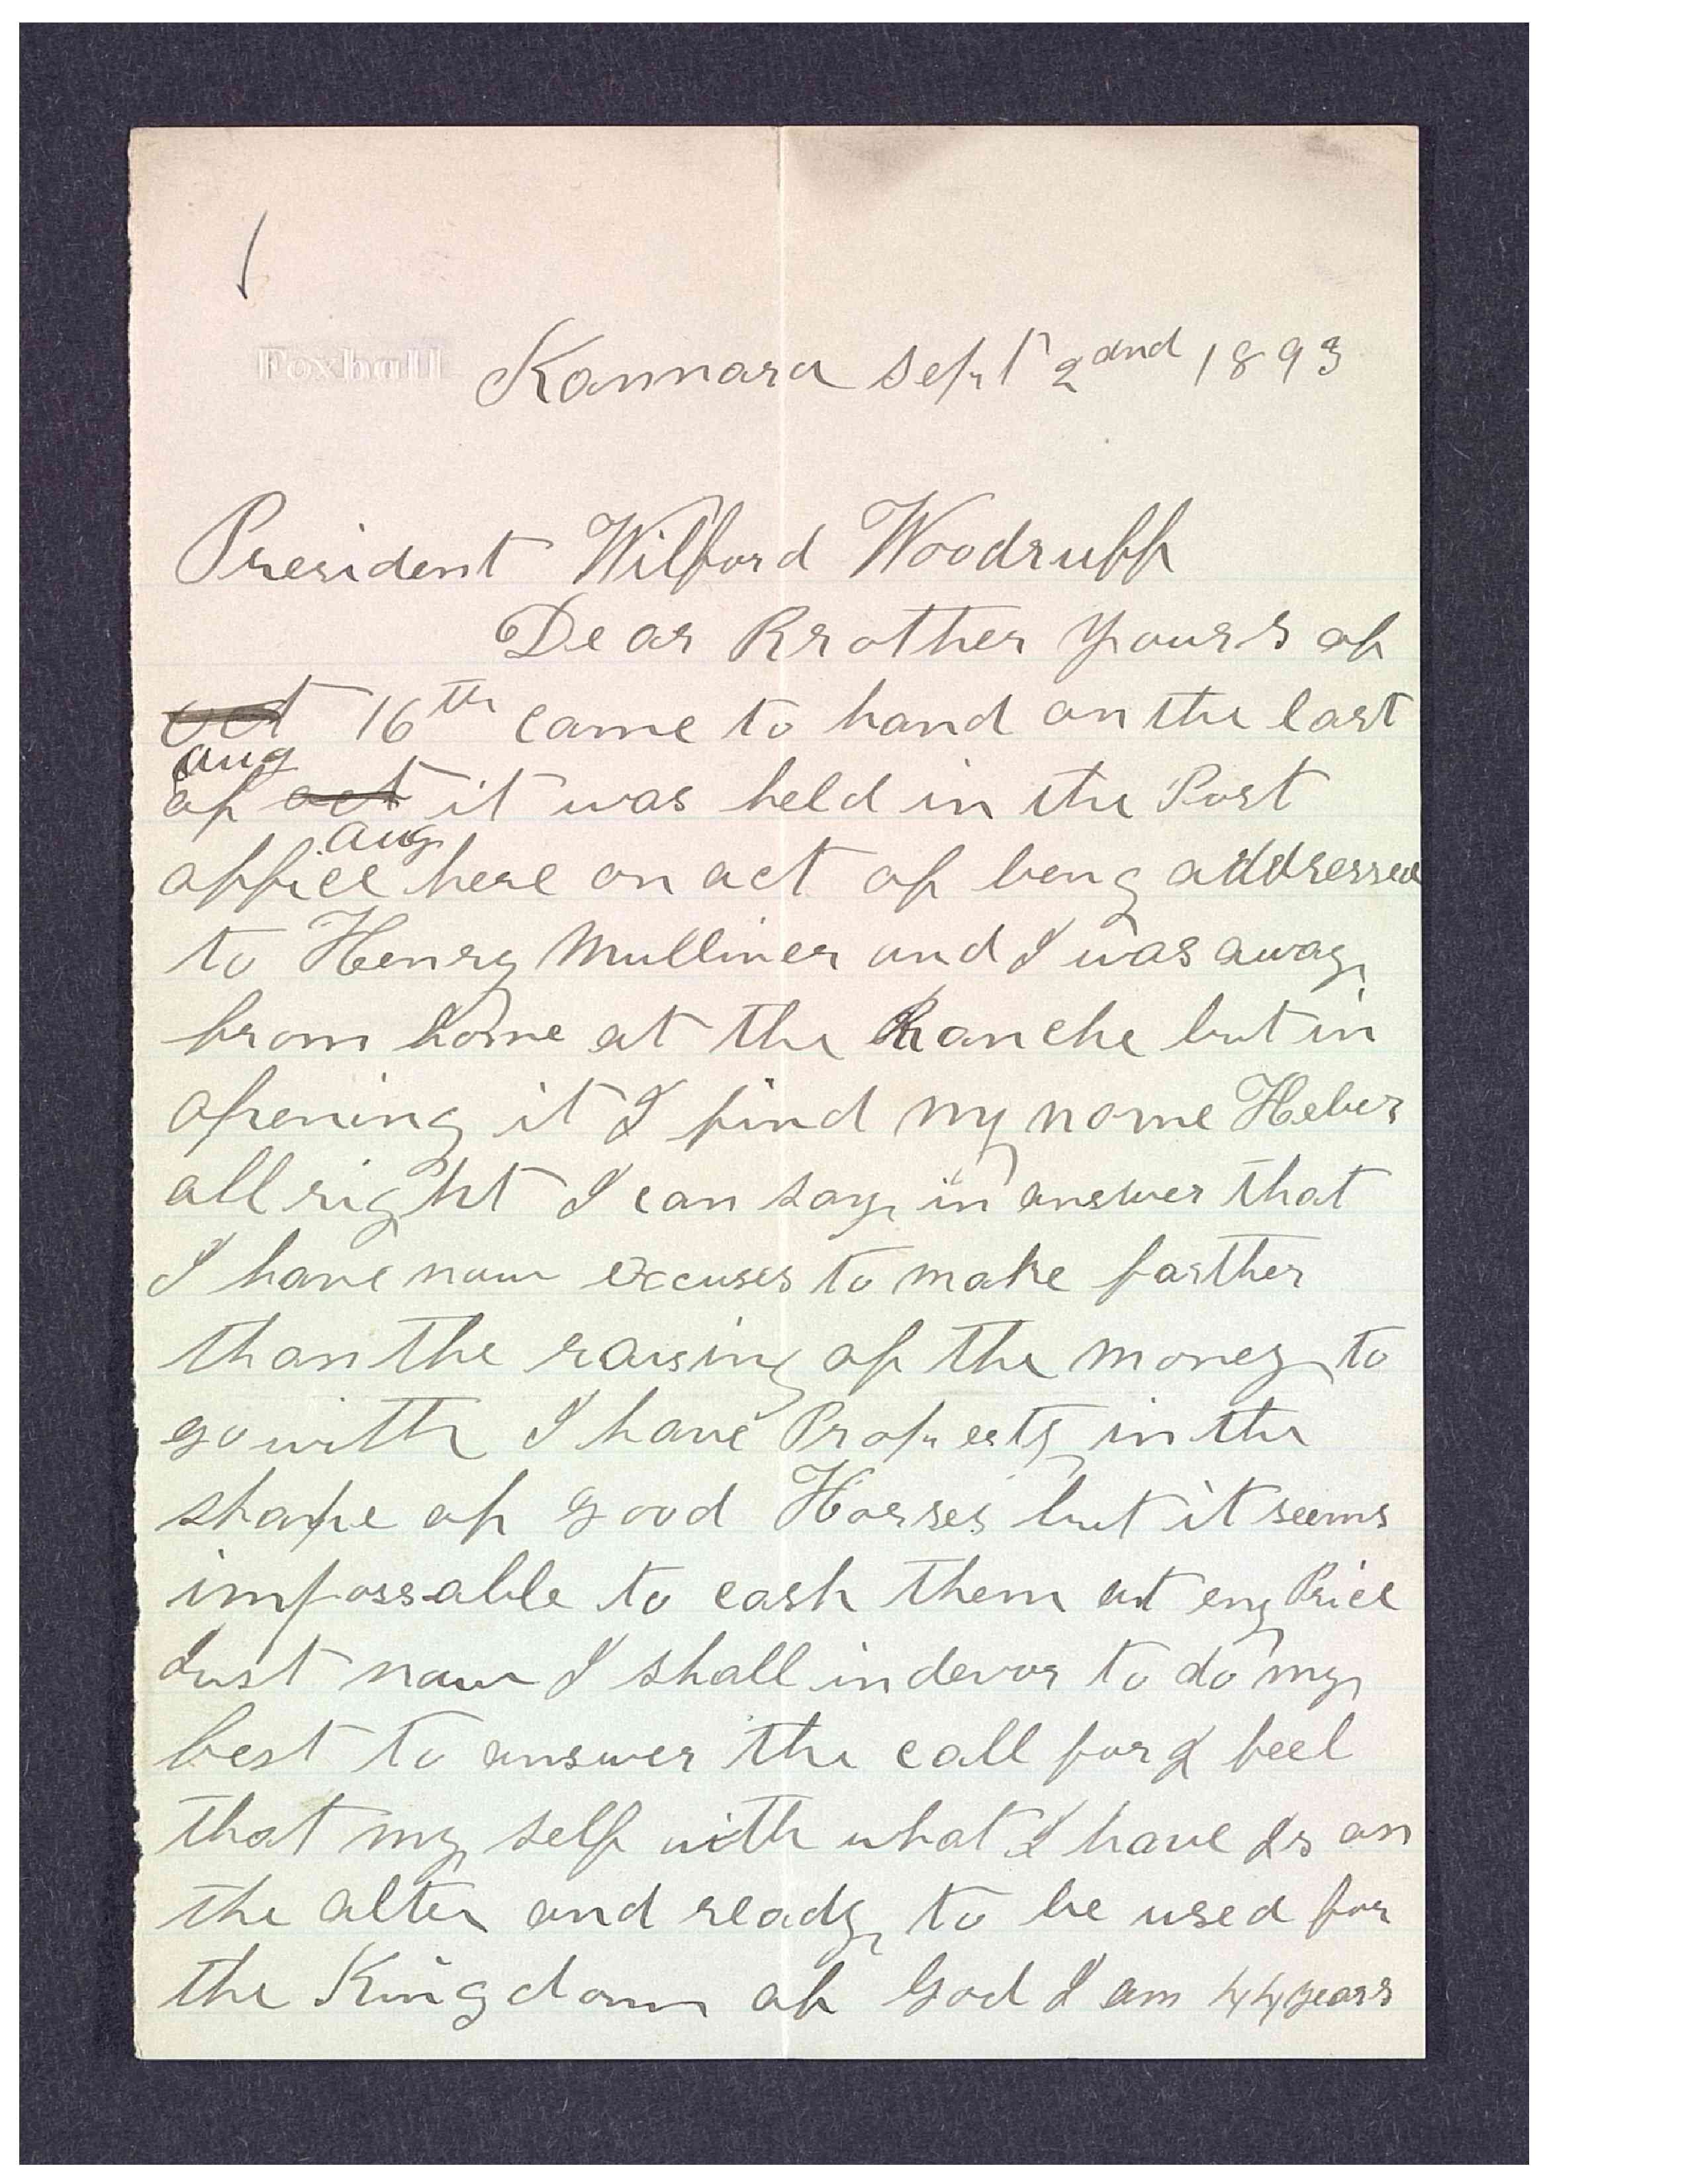 Foxhall
Kannara Sept 2dnd 1893
President Wilford Woodruff
Dear Brother Yours of
oct 16th came to hand on the last
aug
of oct it was held in the Post
aug
office here on act of being addressed
to Henry Mulliner and I was away
from home at the Ranche but in
opening it I find my name Heber
all right I can say in answer that
I have now excuses to make farther
than the raising of the money to
go with I have Property in the
shape of good Horses but it seems
impossable to cash them at eny Price
Just now I shall indevor to do my
best to answer the call for I feel
that my self with what I have Is on
the alter and ready to be used for
the Kingdom of God I am 44 years